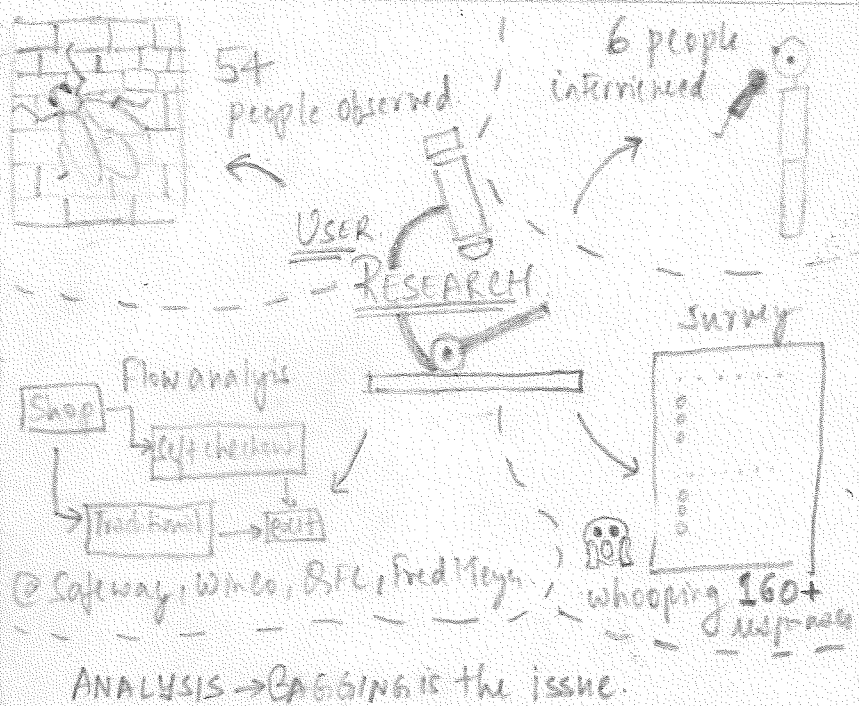 54
people observed
6 people
interviewed
USER
RESEARCH
Survey
Flow analysis
Shop
Self checkout
Traditional
exit
@ Safeway, WinCo, QFC, Fred Meyer
whooping 160+
responses
ANALYSIS → BAGGING is the issue.